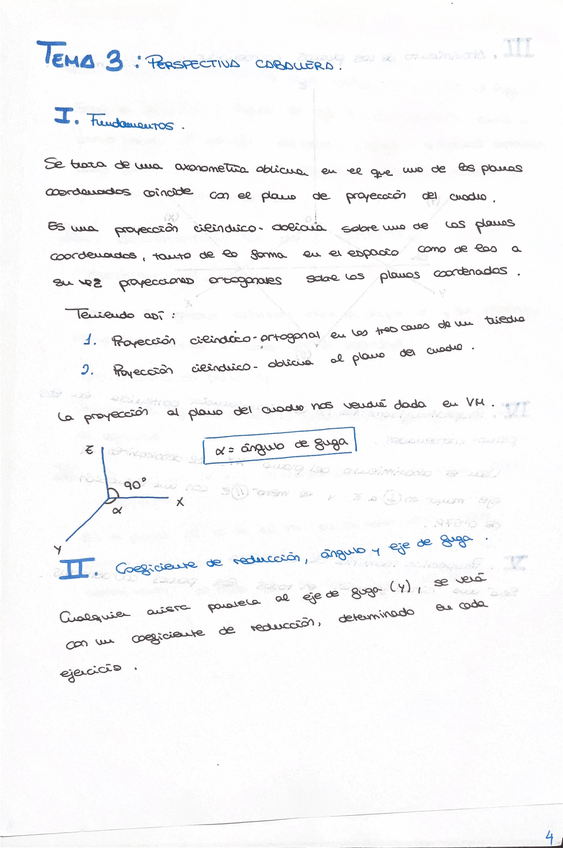 TEMA 3 : PERSPECTIVA CABALLERA.
I. Fundamentos.
Se trata de una axonometría oblicua en el que uno de los planos
coordenados coincide con el plano de proyección del cuadro.
Es una proyección cilíndrico-oblicua sobre uno de los planos
coordenados, tanto de la forma en el espacio como de las a
su vez proyecciones ortogonales sobre los planos coordenados.
Teniendo así :
1. Proyección cilíndrico-ortogonal en las tres caras de un triedro
2. Proyección cilíndrico-oblicua al plano del cuadro.
La proyección al plano del cuadro nos vendrá dada en VM.
α = ángulo de fuga
Z
90°
X
α
Y
II. Coeficiente de reducción, ángulo y eje de fuga.
Cualquier arista paralela al eje de fuga (Y), se verá
con un coeficiente de reducción, determinado en cada
ejercicio.
4